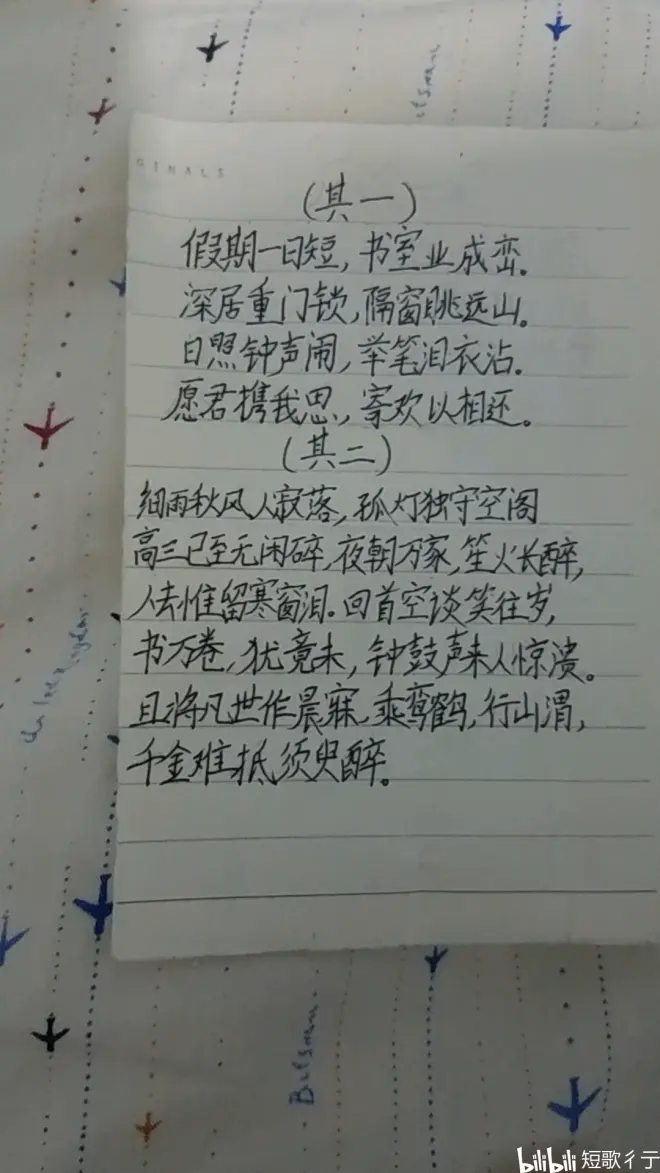 GINALS
(其一)
假期一日短,书室业成峦。
深居重门锁,隔窗眺远山。
日照钟声闹,举笔泪衣沾。
愿君携我思,寄欢以相还。
(其二)
细雨秋风人寂落,孤灯独守空阁
高三已至无闲碎,夜朝万家,笙火长醉,
人去惟留寒窗泪。回首空谈笑往岁,
书万卷,犹竟未,钟鼓声来人惊溃。
且将凡世作晨寐,乘鸾鹤,行山渭,
千金难抵须臾醉。
bilibili 短歌彳亍